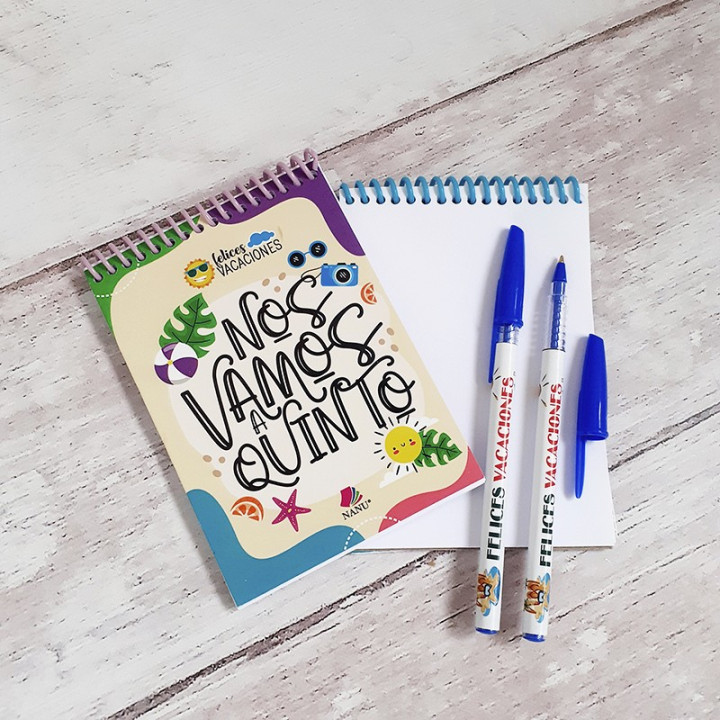 felices
VACACIONES
NOS
VAMOS
A
QUINTO
NANU®
FELICES VACACIONES
FELICES VACACIONES